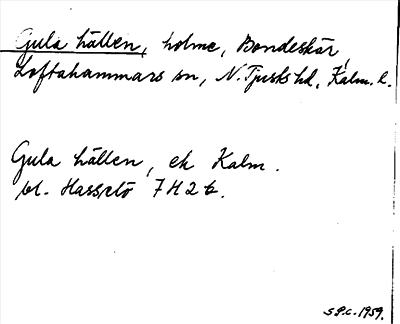 Gula hällen, holme, Bondeskär
Loftahammars sn, N. Tjusts hd, Kalm. l.
Gula hällen, ek Kalm.
bl. Hasselö 7 H 2 b.
S.P.C. 1959.